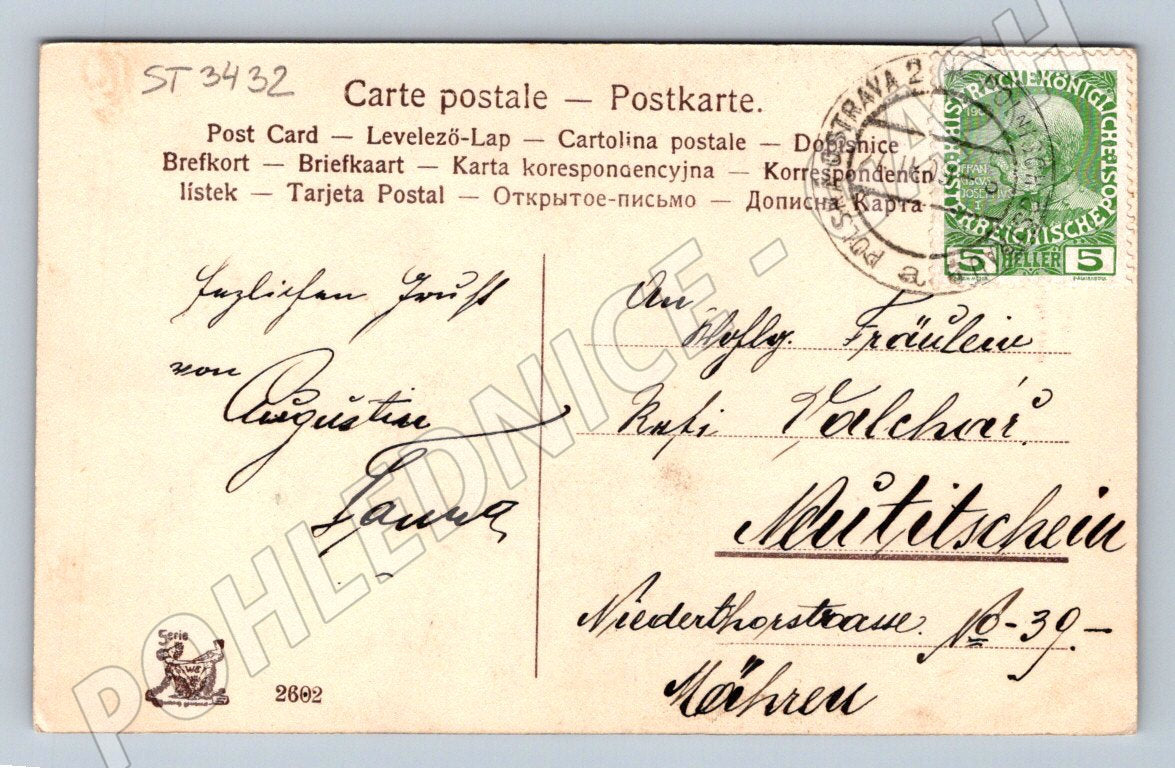 ST 3432
Carte postale — Postkarte.
Post Card — Levelező-Lap — Cartolina postale — Dopisnice
Brefkort — Briefkaart — Karta korespondencyjna — Korrespondenčn
lístek — Tarjeta Postal — Открытое-письмо — Дописна Карта
POLSKÁ OSTRAVA 2
a
KAISERLICHE KÖNIGLICHE
ÖSTERREICHISCHE POST
FRAN
JOSEF I
5 HELLER 5
Herzlichen Gruß
von
Augustin
Hanna
An
Wohlg. Fräulein
Resi Valchář
Neutitschein
Niederthorstrasse. No-39-
Mähren
Serie
2602
POHLEDNICE